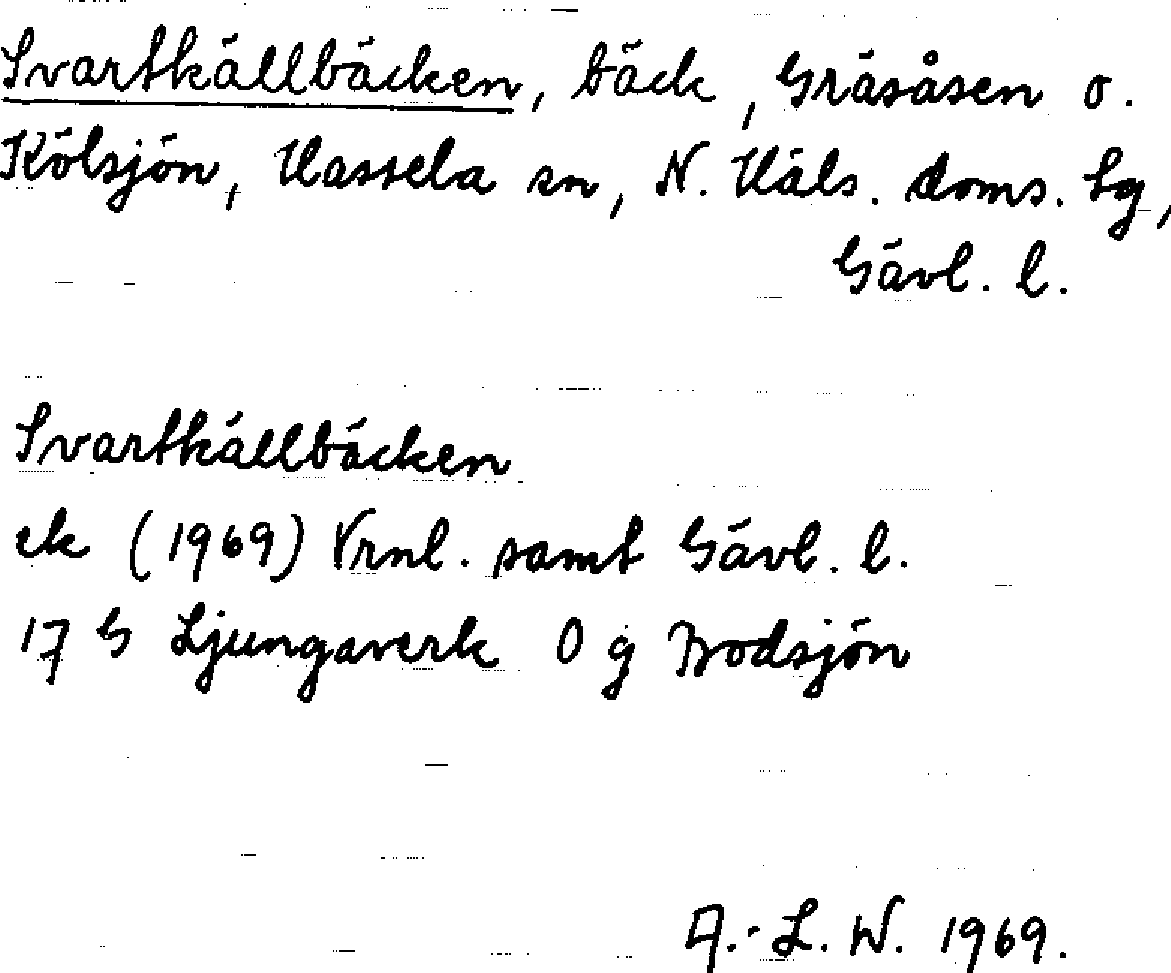 Svartkällbäcken, bäck, Gräsåsen o.
Kölsjön, Hassela sn, N. Häls. doms. Lg,
Gävl. l.
Svartkällbäcken
ek (1969) Vrnl. samt Gävl. l.
17 G Ljungaverk 0 g Brodsjön
A.-L. W. 1969.